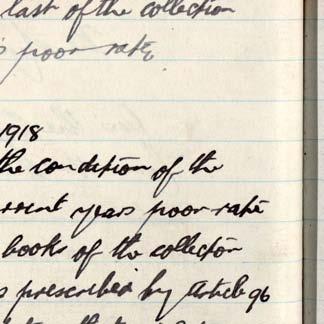 last of the collection
s poor rate
1918
the condition of the
rrent years poor rate
books of the collector
s prescribed by Article 96